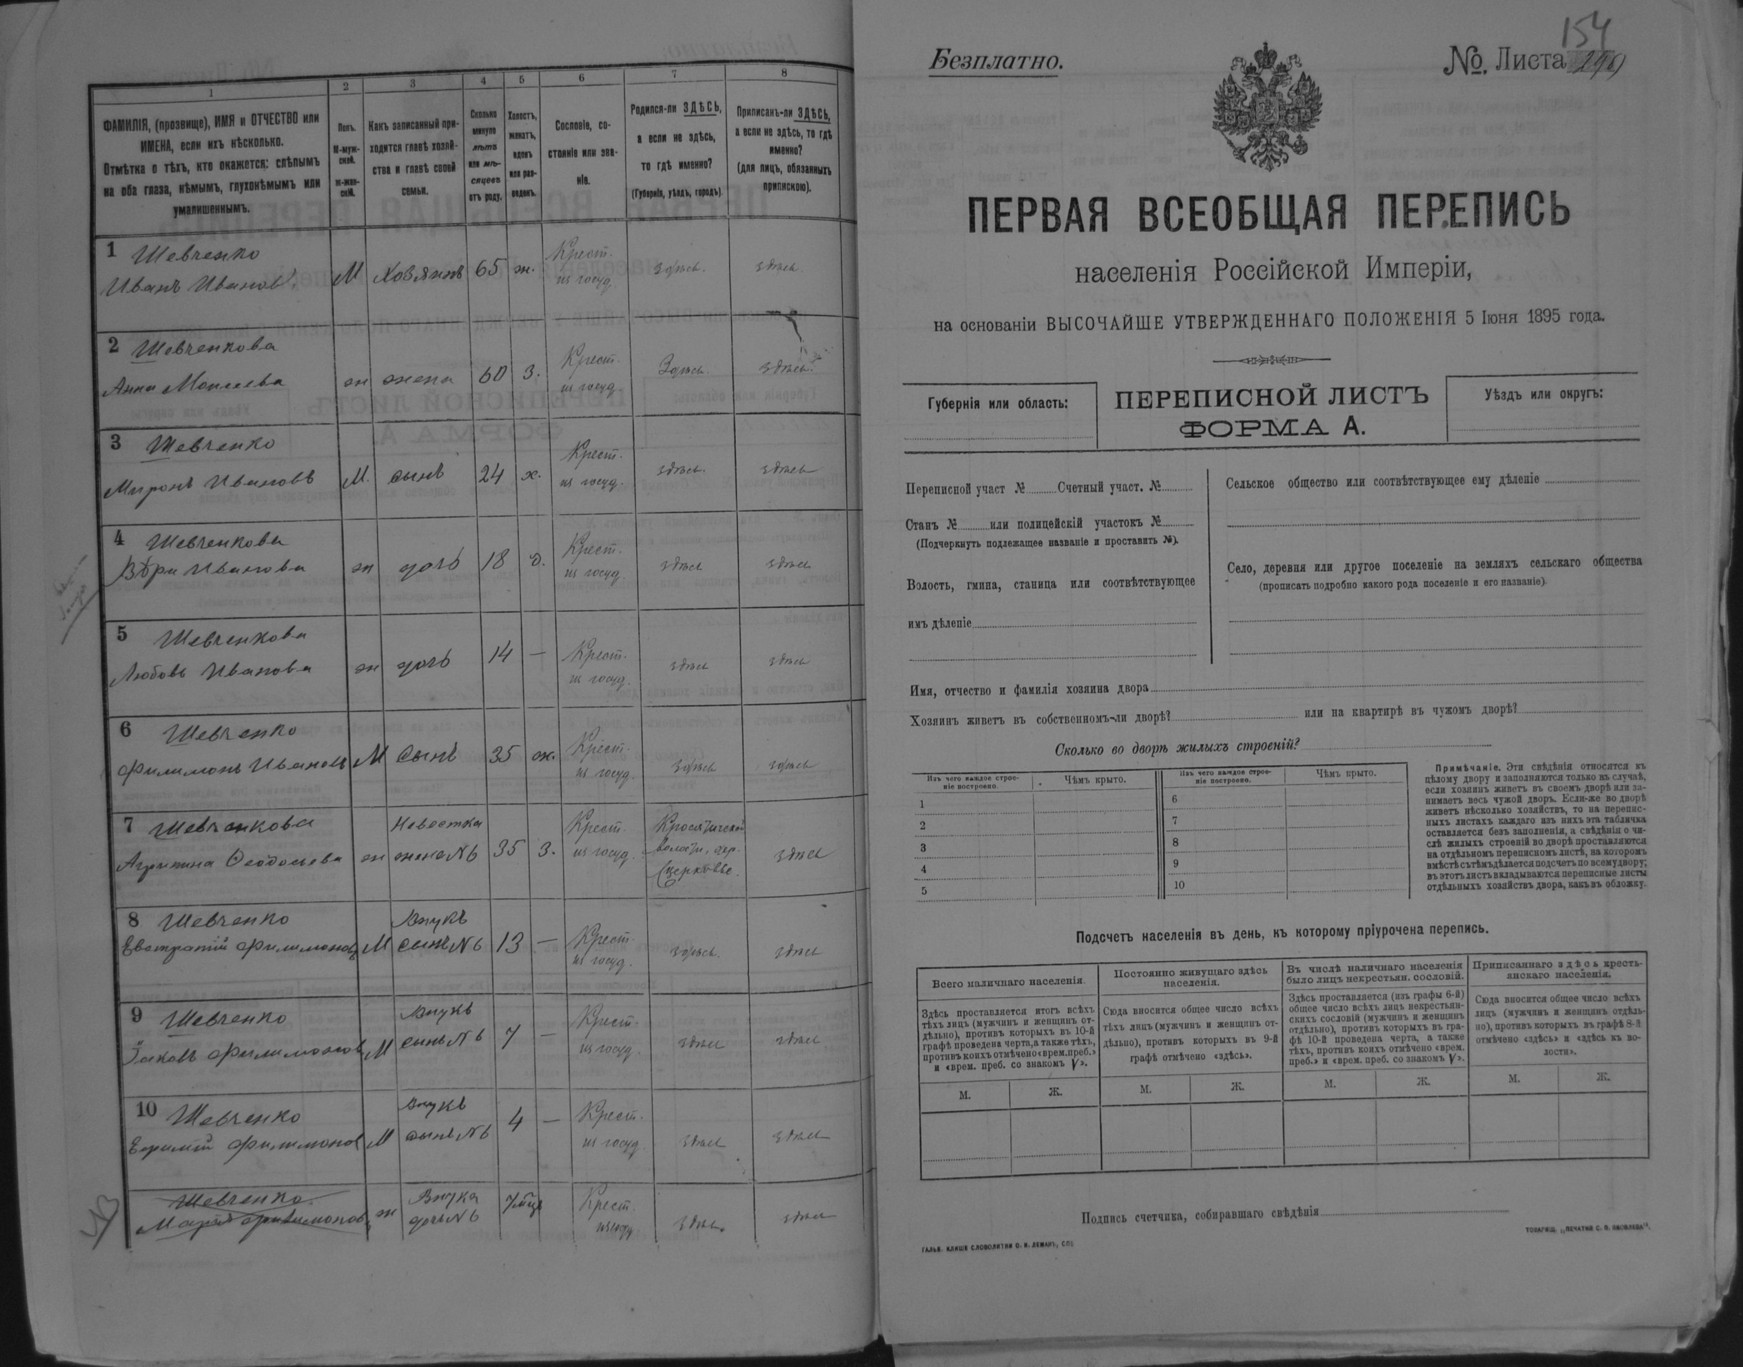 1
2
3
4
5
6
7
8
ФАМИЛІЯ, (прозвище), ИМЯ и ОТЧЕСТВО или
ИМЕНА, если ихъ нѣсколько.
Отмѣтка о тѣхъ, кто окажется: слѣпымъ
на оба глаза, нѣмымъ, глухонѣмымъ или
умалишеннымъ.
Полъ.
М-муж-
ской.
Ж-жен-
скій.
Какъ записанный при-
ходится главѣ хозяй-
ства и главѣ своей
семьи.
Сколько
минуло
лѣтъ
или мѣ-
сяцевъ
отъ роду.
Холостъ,
женатъ,
вдовъ
или раз-
веденъ.
Сословіе, со-
стояніе или зва-
ніе.
Родился-ли ЗДѢСЬ,
а если не здѣсь,
то гдѣ именно?
(Губернія, уѣздъ, городъ)
Приписанъ-ли ЗДѢСЬ,
а если не здѣсь, то гдѣ
именно?
(для лицъ, обязанныхъ
припискою).
1 Шевченко
Иванъ Ивановъ М Хозяинъ 65 ж. Крест. из госуд. здѣсь. здѣсь
2 Шевченкова
Анна Моисеева ж жена 60 З. Крест. из госуд. Здѣсь. здѣсь.
3 Шевченко
Миронъ Ивановъ М. сынъ 24 х. Крест. из госуд. здѣсь. здѣсь
4 Шевченкова
Вѣра Иванова ж дочь 18 д. Крест. из госуд. здѣсь здѣсь
5 Шевченкова
Любовь Иванова ж дочь 14 — Крест. из госуд. здѣсь здѣсь
6 Шевченко
Филимонъ Ивановъ М сынъ 35 ж. Крест. из госуд. здѣсь здѣсь
7 Шевченкова Невестка
Агрипина Феодосьева ж жена №6 35 З. Крест. из госуд. здѣсь
8 Шевченко Внукъ
Евстратій Филимоновъ М сынъ №6 13 — Крест. из госуд. здѣсь. здѣсь
9 Шевченко Внукъ
Іаковъ Филимоновъ М сынъ №6 7 — Крест. из госуд. здѣсь здѣсь
10 Шевченко Внукъ
Филимонов М сынъ №6 4 — Крест. из госуд. здѣсь здѣсь
Шевченко Внука
Марія Филимонов. ж дочь №6 7 мѣц Крест. из госуд. здѣсь. здѣсь
Безплатно.
№ Листа
154
ПЕРВАЯ ВСЕОБЩАЯ ПЕРЕПИСЬ
населенія Россійской Имперіи,
на основаніи ВЫСОЧАЙШЕ УТВЕРЖДЕННАГО ПОЛОЖЕНІЯ 5 Іюня 1895 года.
Губернія или область:
ПЕРЕПИСНОЙ ЛИСТЪ
ФОРМА А.
Уѣздъ или округъ:
Переписной участ № Счетный участ. №
Станъ № или полицейскій участокъ №
(Подчеркнуть подлежащее названіе и проставить №).
Волость, гмина, станица или соотвѣтствующее
имъ дѣленіе
Сельское общество или соотвѣтствующее ему дѣленіе
Село, деревня или другое поселеніе на земляхъ сельскаго общества
(прописать подробно какого рода поселеніе и его названіе).
Имя, отчество и фамилія хозяина двора
Хозяинъ живетъ въ собственномъ-ли дворѣ? или на квартирѣ въ чужомъ дворѣ?
Сколько во дворѣ жилыхъ строеній?
Изъ чего каждое строе-
ніе построено.
Чѣмъ крыто.
Изъ чего каждое строе-
ніе построено.
Чѣмъ крыто.
1
2
3
4
5
6
7
8
9
10
Примѣчаніе. Эти свѣдѣнія относятся къ
цѣлому двору и заполняются только въ случаѣ,
если хозяинъ живетъ въ своемъ дворѣ или за-
нимаетъ весь чужой дворъ. Если-же во дворѣ
живетъ нѣсколько хозяйствъ, то на перепис-
ныхъ листахъ каждаго изъ нихъ эта табличка
оставляется безъ заполненія, а свѣдѣнія о чи-
слѣ жилыхъ строеній во дворѣ проставляются
на отдѣльномъ переписномъ листѣ, на которомъ
вмѣстѣ съ тѣмъ дѣлается подсчетъ по всему двору;
въ этотъ листъ вкладываются переписные листы
отдѣльныхъ хозяйствъ двора, какъ въ обложку.
Подсчетъ населенія въ день, къ которому пріурочена перепись.
Всего наличнаго населенія.
Здѣсь проставляется итогъ всѣхъ
тѣхъ лицъ (мужчинъ и женщинъ от-
дѣльно), противъ которыхъ въ 10-й
графѣ проведена черта, а также тѣхъ,
противъ коихъ отмѣчено «врем. преб.»
и «врем. преб. со знакомъ V».
Постоянно живущаго здѣсь
населенія.
Сюда вносится общее число всѣхъ
тѣхъ лицъ (мужчинъ и женщинъ от-
дѣльно), противъ которыхъ въ 9-й
графѣ отмѣчено «здѣсь».
Въ числѣ наличнаго населенія
было лицъ некрестьян. сословій.
Здѣсь проставляется (изъ графы 6-й)
общее число всѣхъ лицъ некрестьян-
скихъ сословій (мужчинъ и женщинъ
отдѣльно), противъ которыхъ въ гра-
фѣ 10-й проведена черта, а также
тѣхъ, противъ коихъ отмѣчено «врем.
преб.» и «врем. преб. со знакомъ V».
Приписаннаго здѣсь кресть-
янскаго населенія.
Сюда вносится общее число всѣхъ
лицъ (мужчинъ и женщинъ отдѣль-
но), противъ которыхъ въ графѣ 8-й
отмѣчено «здѣсь» и «здѣсь въ во-
лости».
М.
Ж.
М.
Ж.
М.
Ж.
М.
Ж.
Подпись счетчика, собиравшаго свѣдѣнія